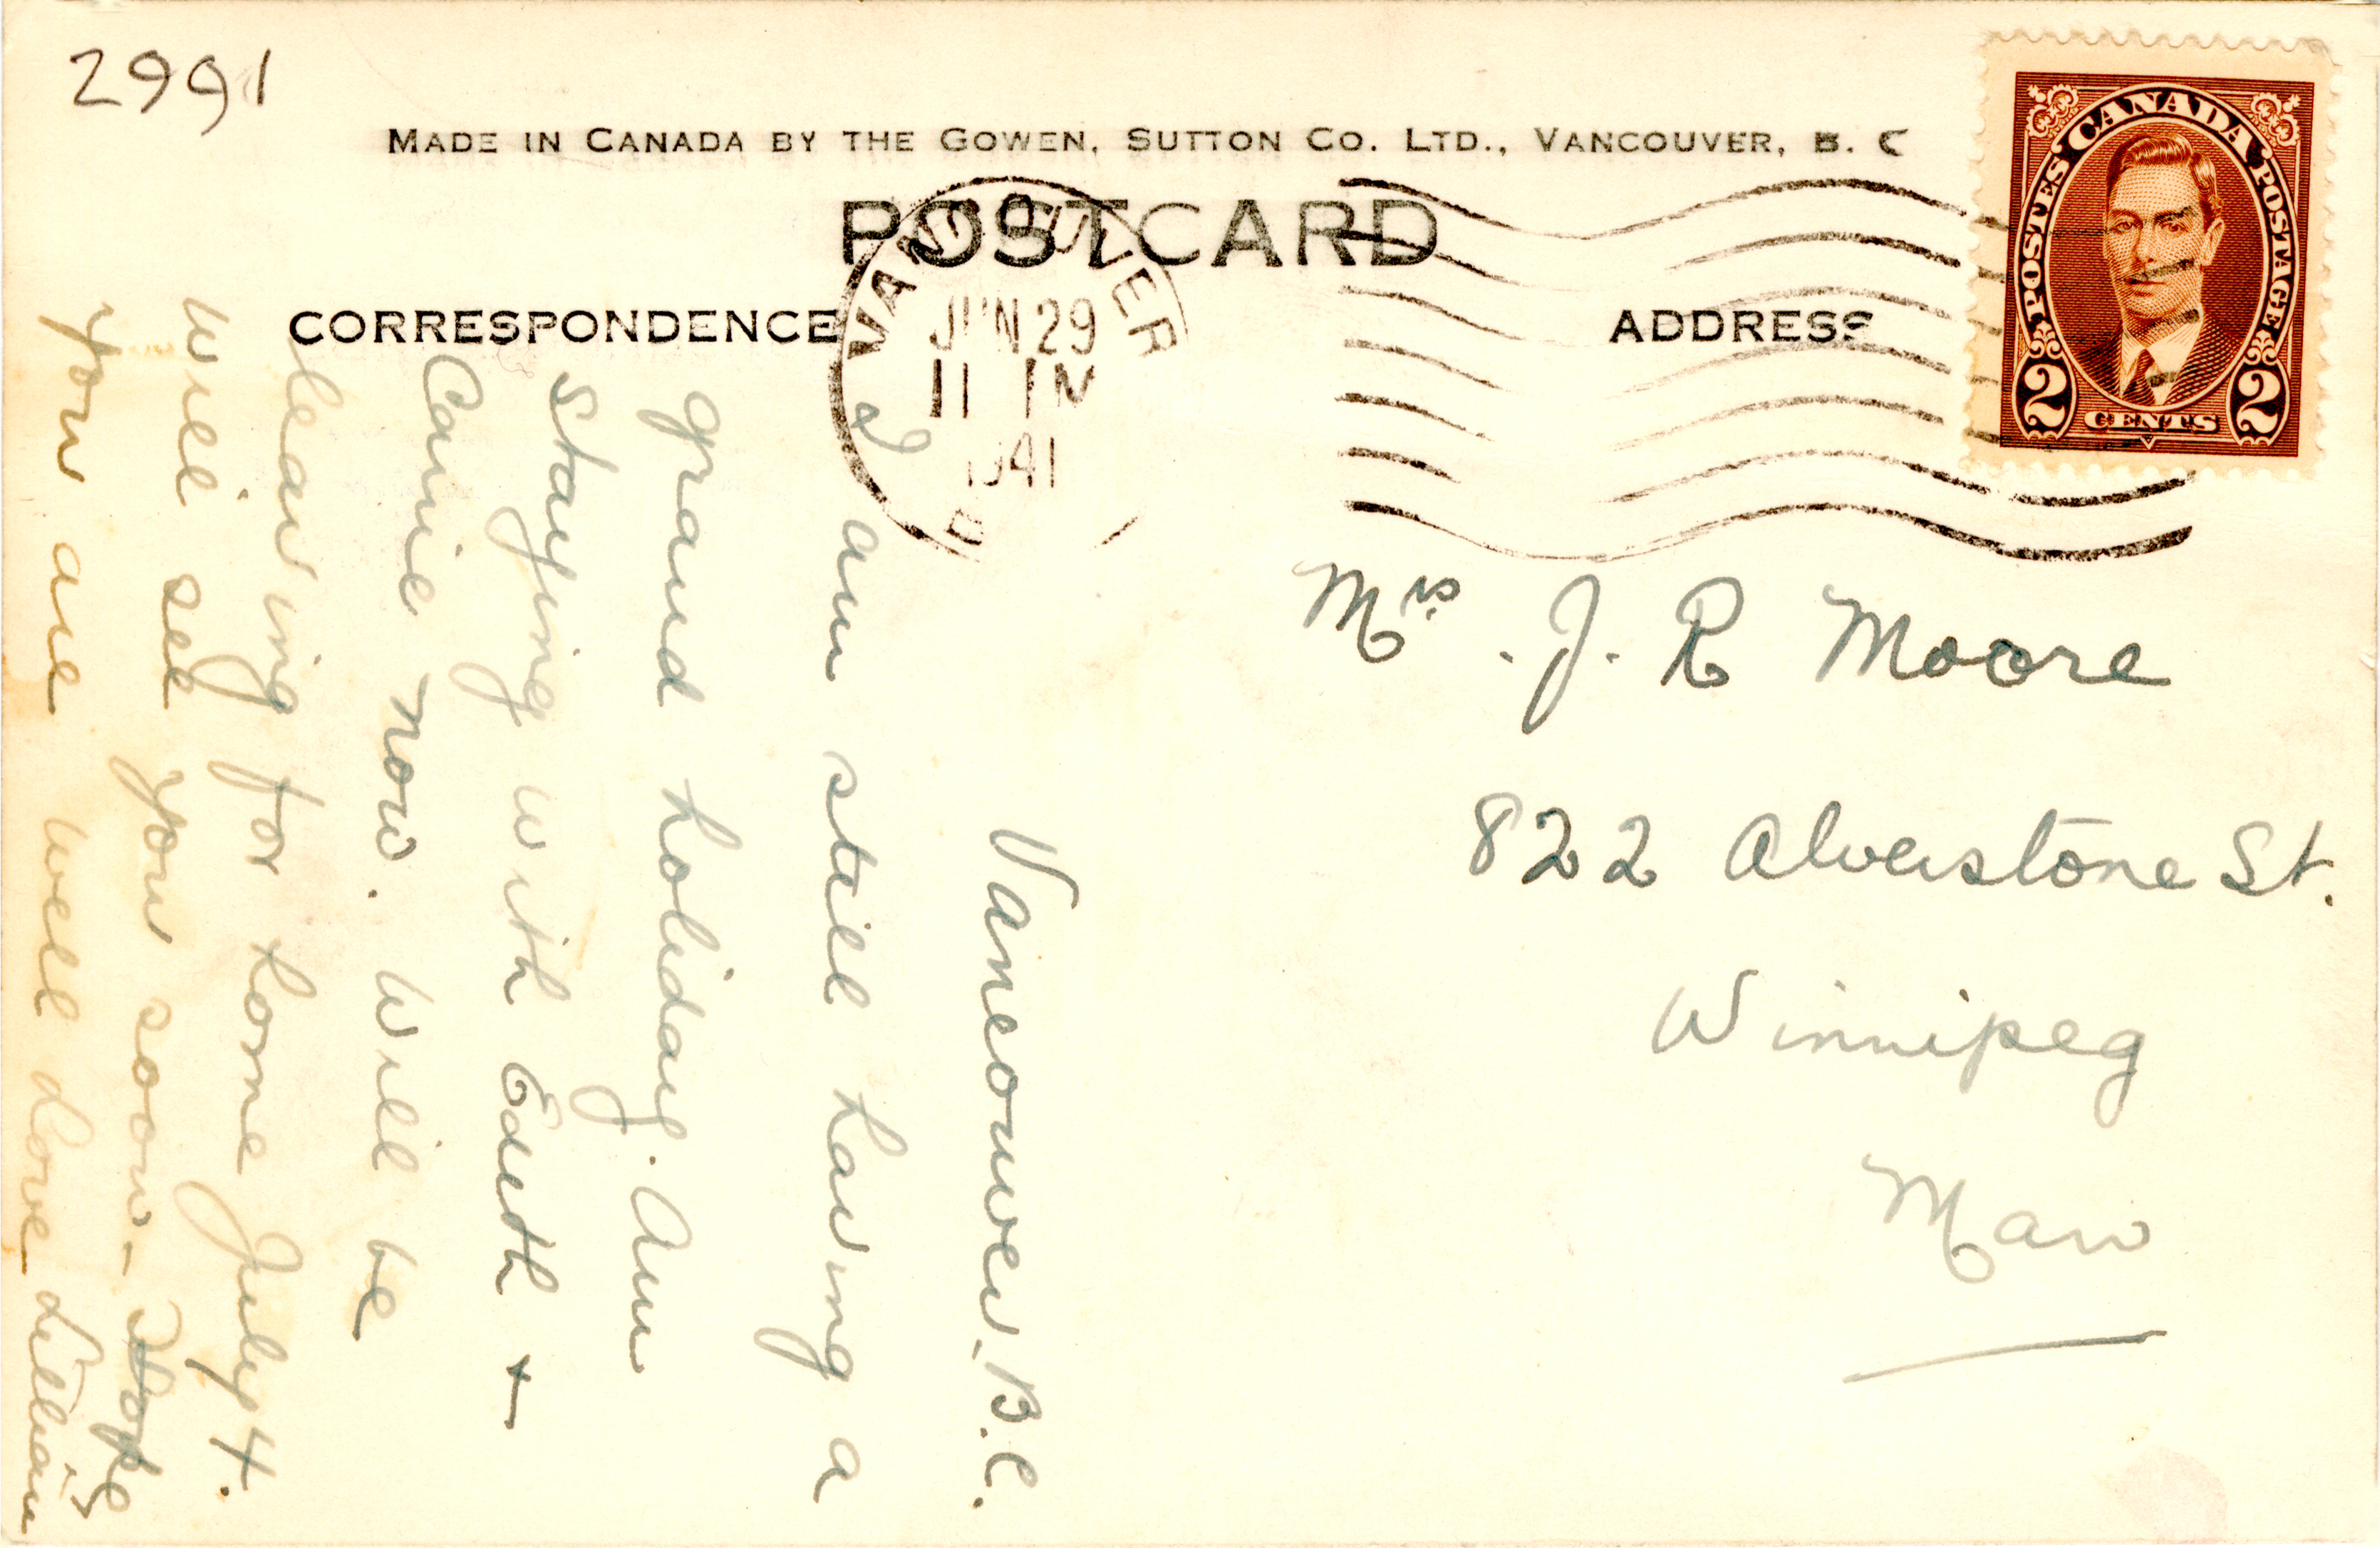 2991
MADE IN CANADA BY THE GOWEN, SUTTON CO. LTD., VANCOUVER, B. C
POSTCARD
CORRESPONDENCE
ADDRESS
POSTES CANADA POSTAGE
2 CENTS 2
VANCOUVER
JUN 29
11 PM
1941
B
Vancouver. B.C.
I am still having a
grand holiday. Am
staying with Edith +
Carrie now. Will be
leaving for home July 4.
Will see you soon. Hope
you are well Love Lillian
Mrs. J. R Moore
822 Alverstone St.
Winnipeg
Man